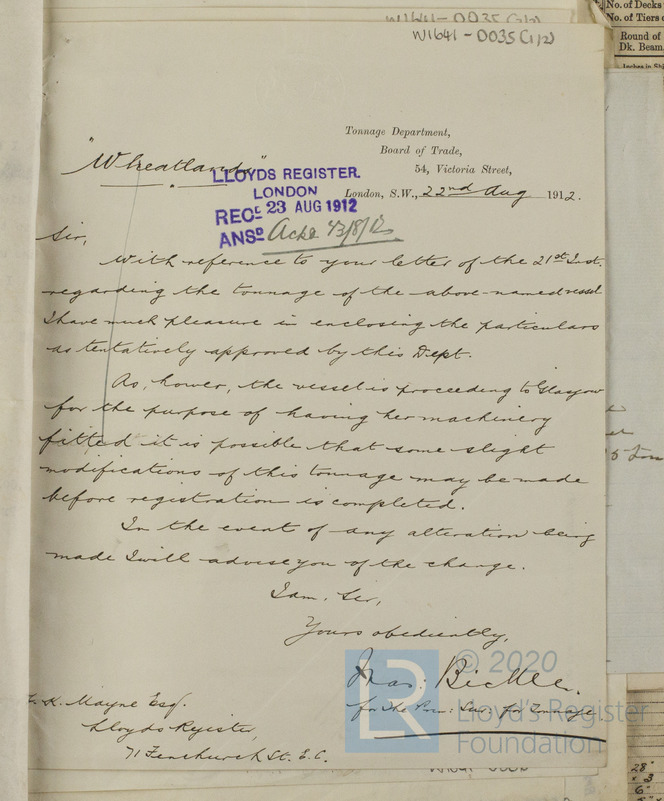 W1641-0035(1/2)
No. of Decks
No. of Tiers o
Round of
Dk. Beam
Tonnage Department,
Board of Trade,
54, Victoria Street,
London, S.W., 22nd Aug 1912.
"Wheatlands"
LLOYDS REGISTER.
LONDON
REC^D 23 AUG 1912
ANS^D Ack^d 23/8/12
Sir,
With reference to your letter of the 21st Inst.
regarding the tonnage of the above-named vessel
I have much pleasure in enclosing the particulars
as tentatively approved by this Dept.
As, hower, the vessel is proceeding to Glasgow
for the purpose of having her machinery
fitted it is possible that some slight
modifications of this tonnage may be made
before registration is completed.
In the event of any alteration being
made I will advise you of the change.
I am, Sir,
Yours obediently,
for The Prin: Sur: for Tonnage
K. Mayne Esq.
Lloyds Register,
71 Fenchurch St. E.C.
LR
© 2020
Lloyd's Register
Foundation
28"
6"